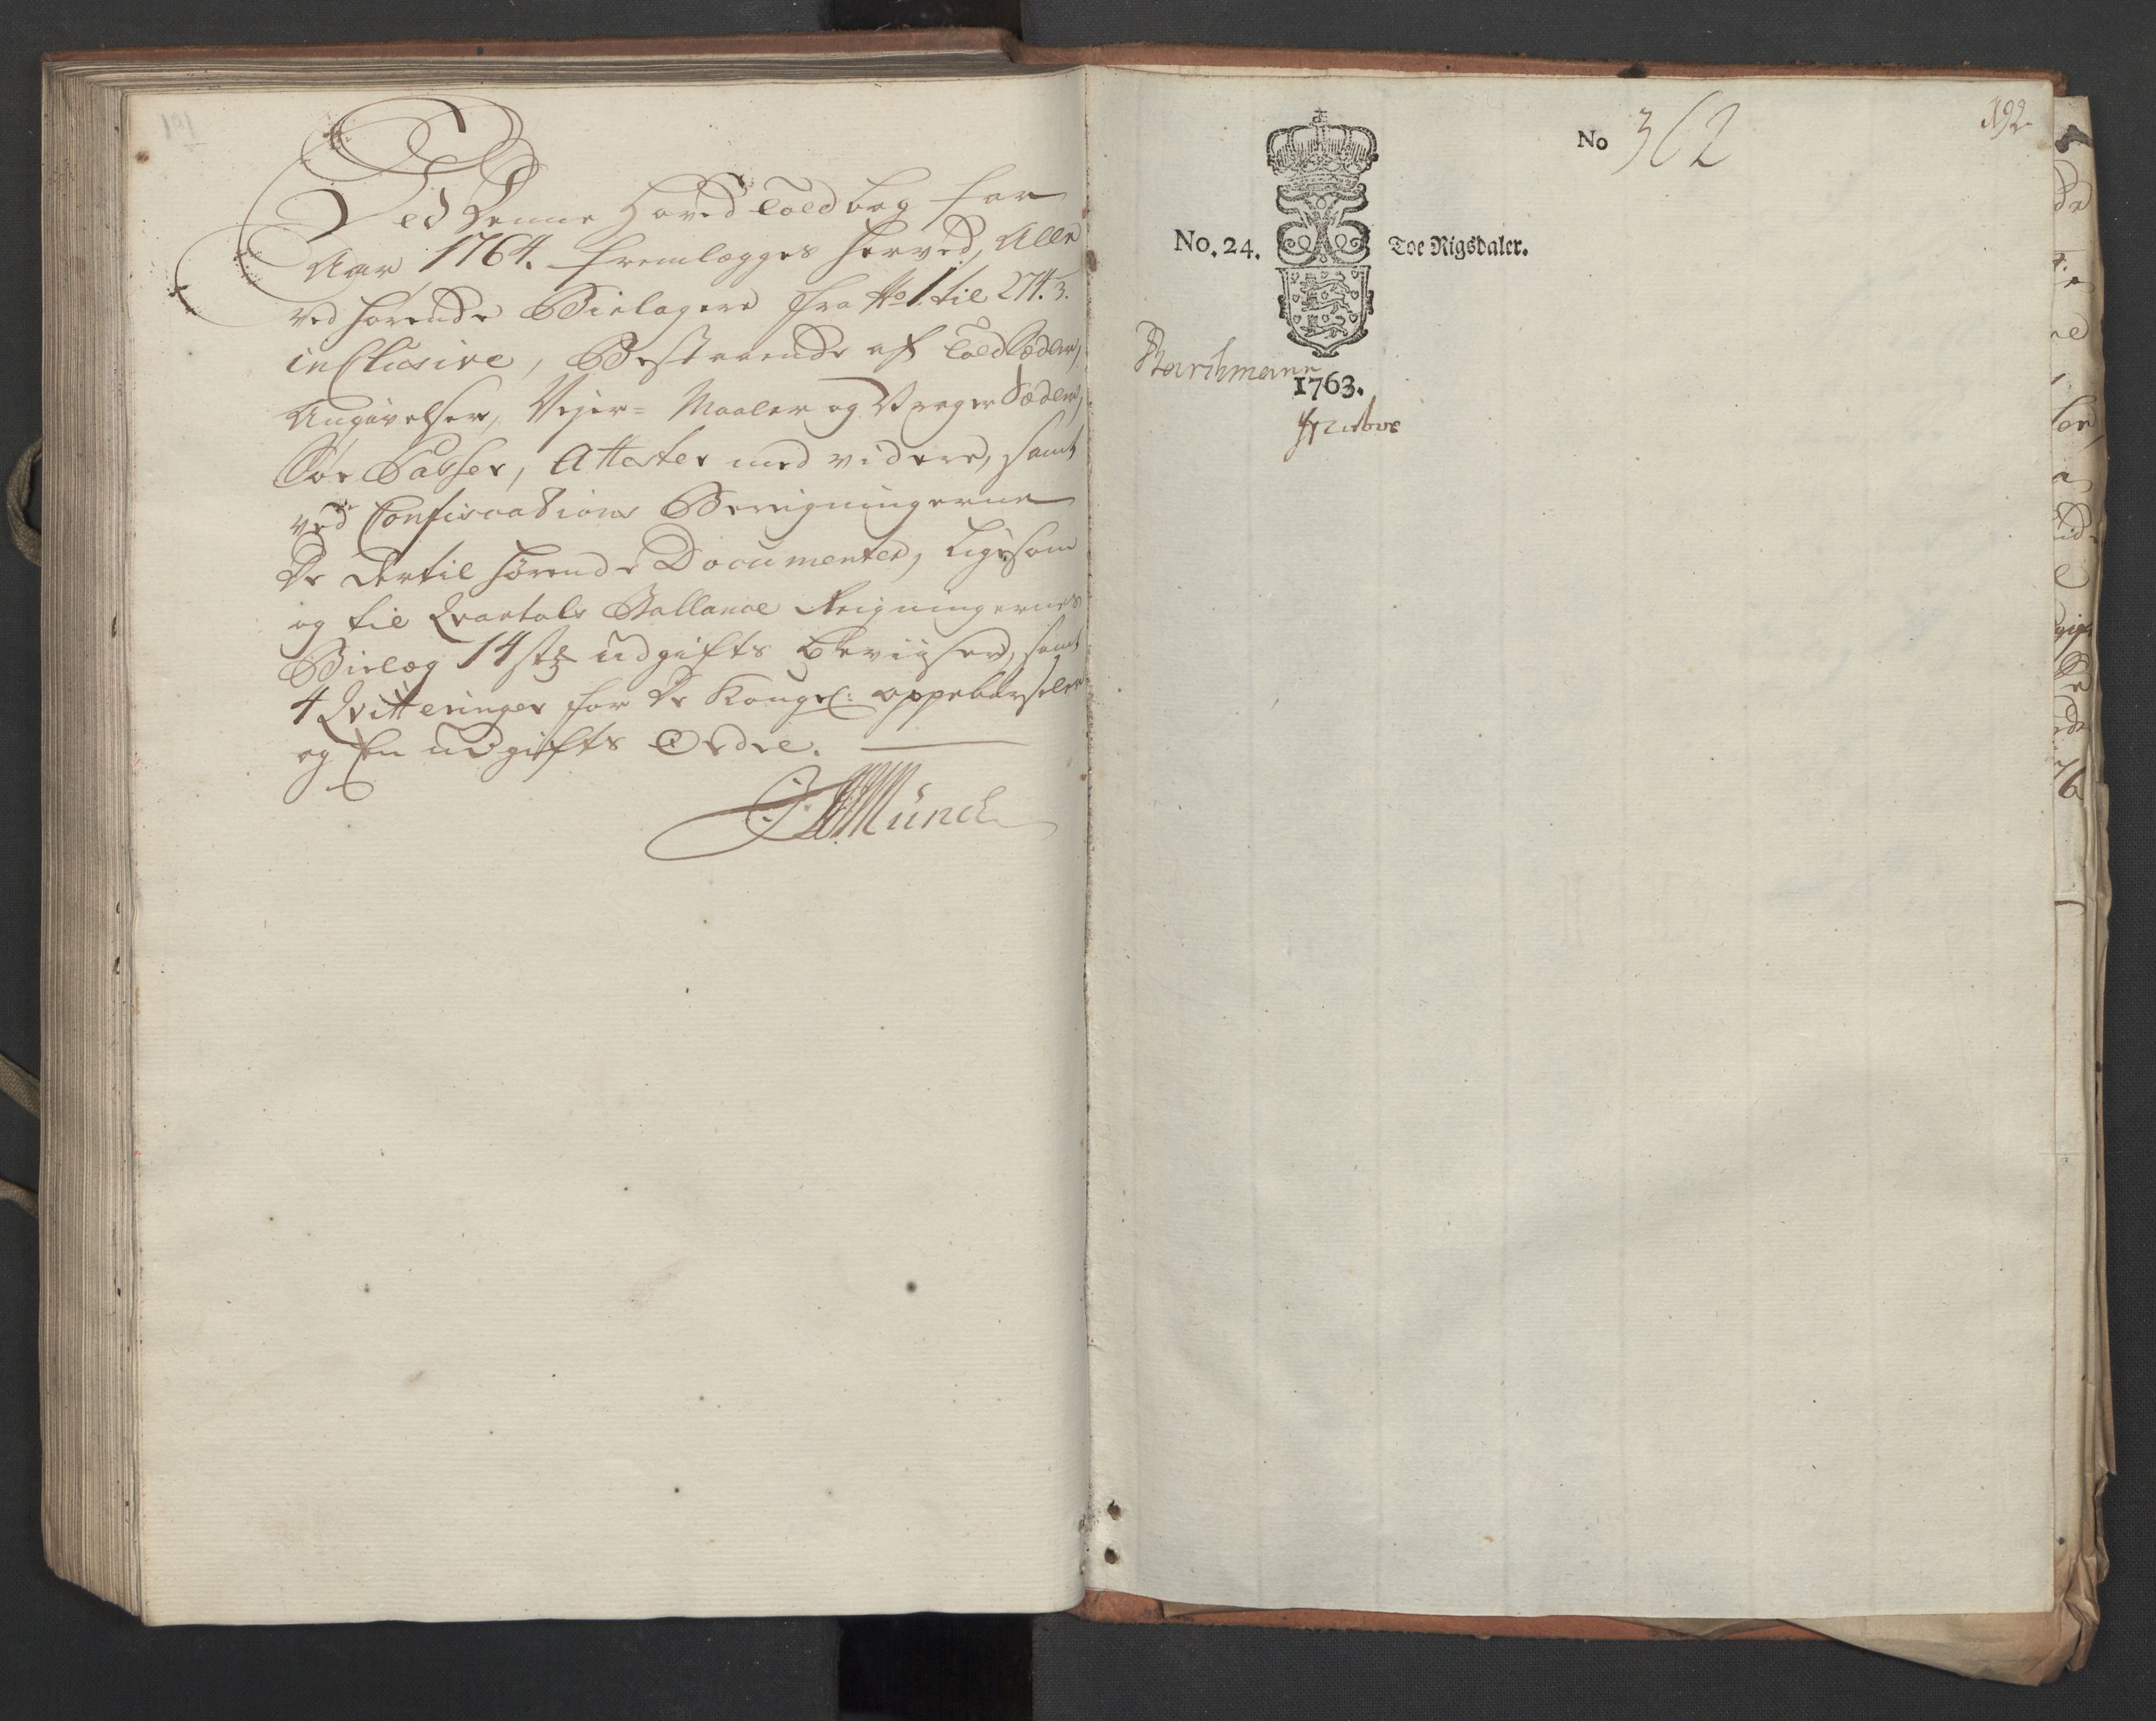 Ved Denne Hoved Told bog for
Aar 1764. fremlægges herved, Alle
ved hørende Bielagere fra No 1. til 274.3.
inclusive, Bestaaende af Told Sedler,
Angivelser, Vejer= Maaler og Vrager Sedler,
Søe Passer, Attester med videre, samt
ved Confiscations Beregningerne
De dertil hørende Documenter, ligesom
og til Qvartals Ballance Reigningernes
Bielag 14 stk udgifts Beviiser, samt
4 Qvitteringer for De Kongel: oppebørseler
og En udgifts Ordre.
Münch
No 362
192
No. 24. Toe Rigsdaler.
1763.